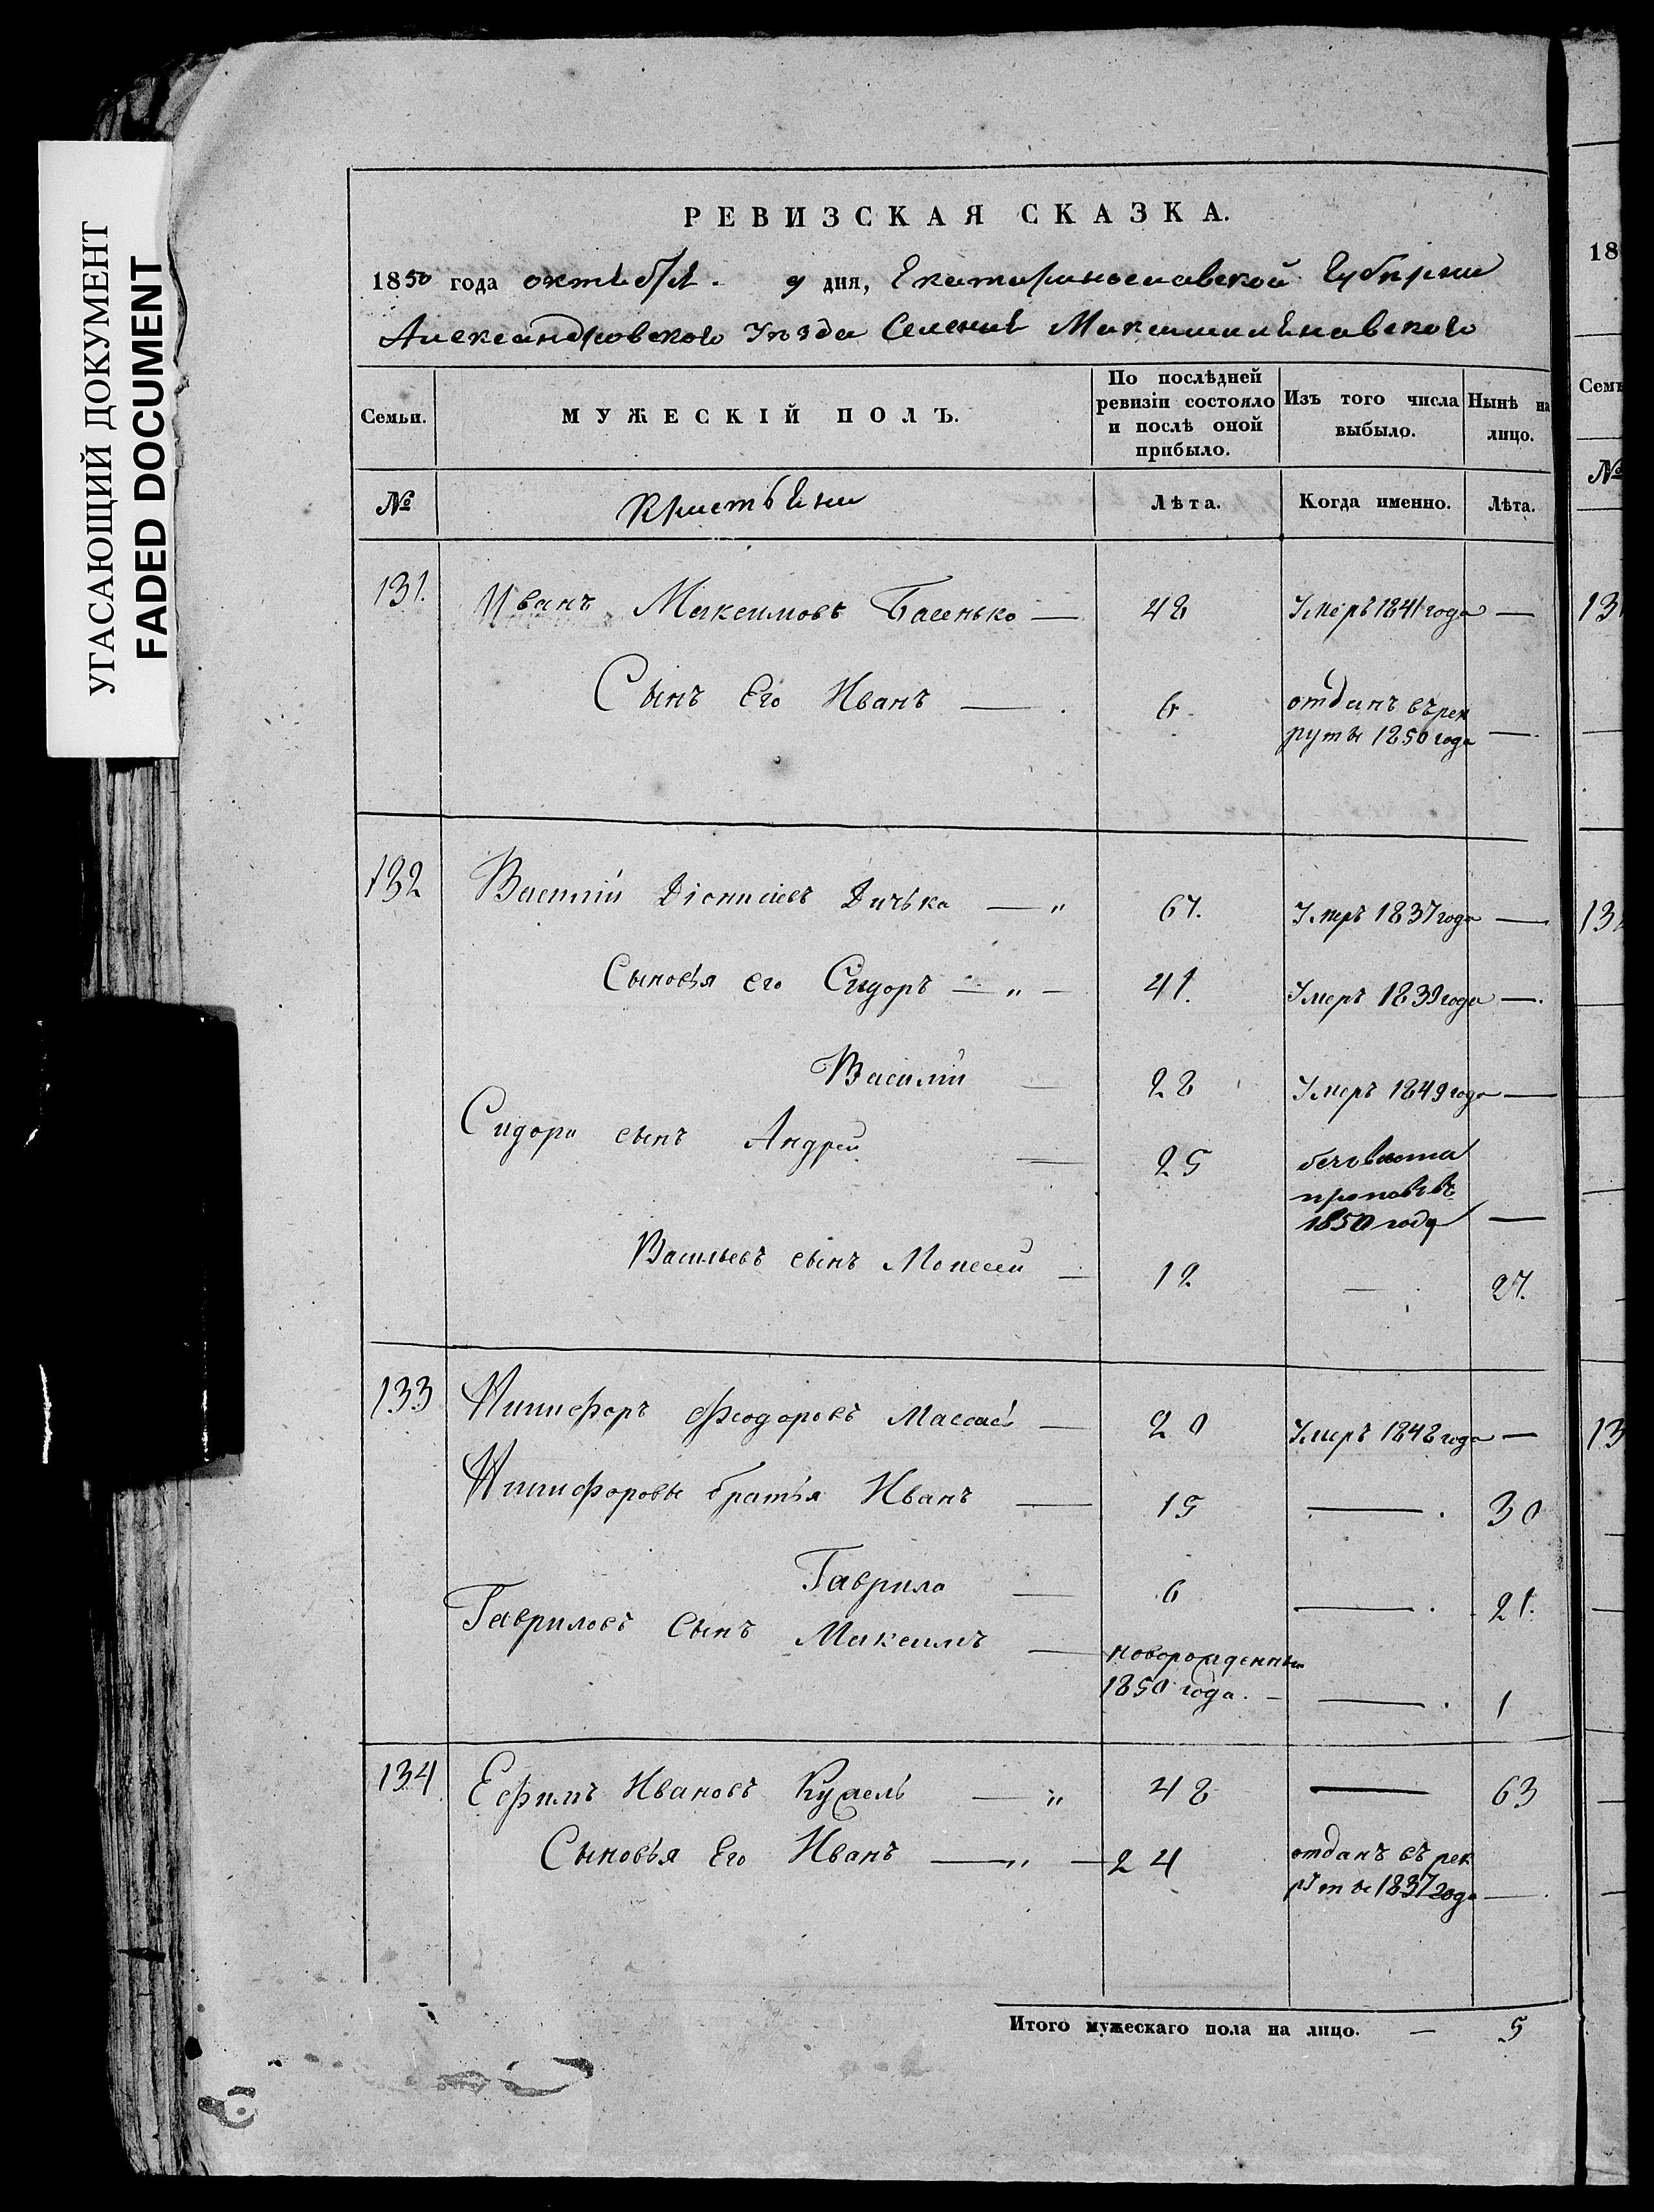 УГАСАЮЩИЙ ДОКУМЕНТ
FADED DOCUMENT
РЕВИЗСКАЯ СКАЗКА.
1850 года октября 9 дня, Екатериньславской Губерни
Александровского Уезда Селения Максимиляновского
Семьи. МУЖЕСКІЙ ПОЛЪ. По послѣдней ревизіи состояло и послѣ оной прибыло. Изъ того числа выбыло. Нынѣ на лицо.
№ Кристьяни Лѣта. Когда именно. Лѣта.
131. Иванъ Максимовъ Басенько — 48 Умеръ 1841 года —
Сынъ Его Иванъ — 6 отданъ въ рек
руты 1850 года —
132 Василій Діонисіевъ Дичька — " 67. Умеръ 1837 года —
Сыновья его Сидоръ — " — 41. Умеръ 1839 года —.
Василій — 28 Умеръ 1849 года —
Сидора сынъ Андрей — 25 безвиста
пропавъ въ
1850 году —
Васильевъ сынъ Моисей — 12 — 27.
133 Никифоръ Феодоровъ — 20 Умеръ 1848 года —
Никифоровы братья Иванъ — 15 —. 30
Гаврило — 6 —. 21.
Гавриловъ Сынъ Максимъ — новорожденны
1850 года. — —. 1
134 Ефимъ Ивановъ Кужель — " 48 — 63
Сыновья Его Иванъ — " — 24 отданъ въ рек
руты 1837 года —
Итого мужескаго пола на лицо. — 5
18
Семь
№
13
13
13